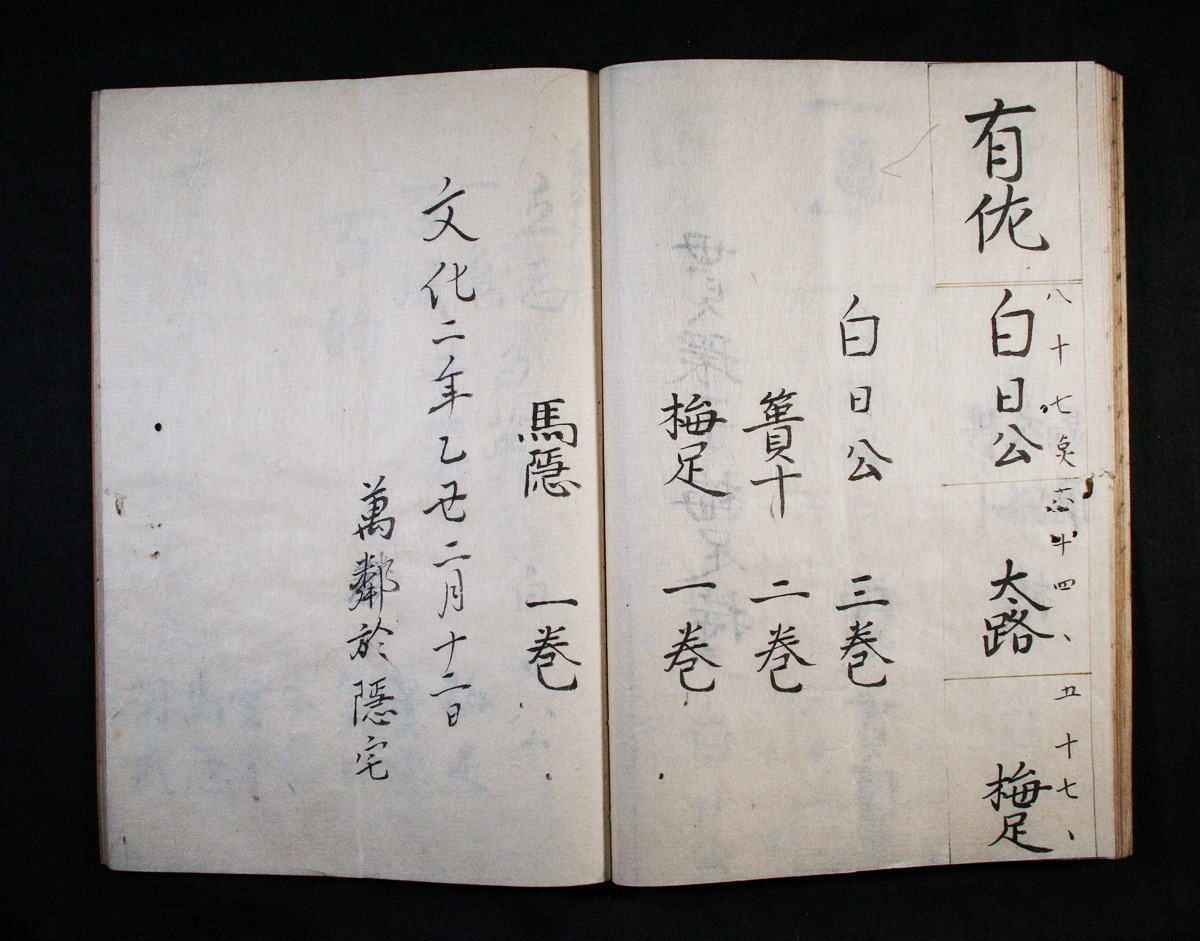 有佐
八十七点
白日公
六十四、
太路
五十七、
梅足
白日公 三巻
簀十 二巻
梅足 一巻
馬隠 一巻
文化二年乙丑二月十二日
萬鄰於隠宅